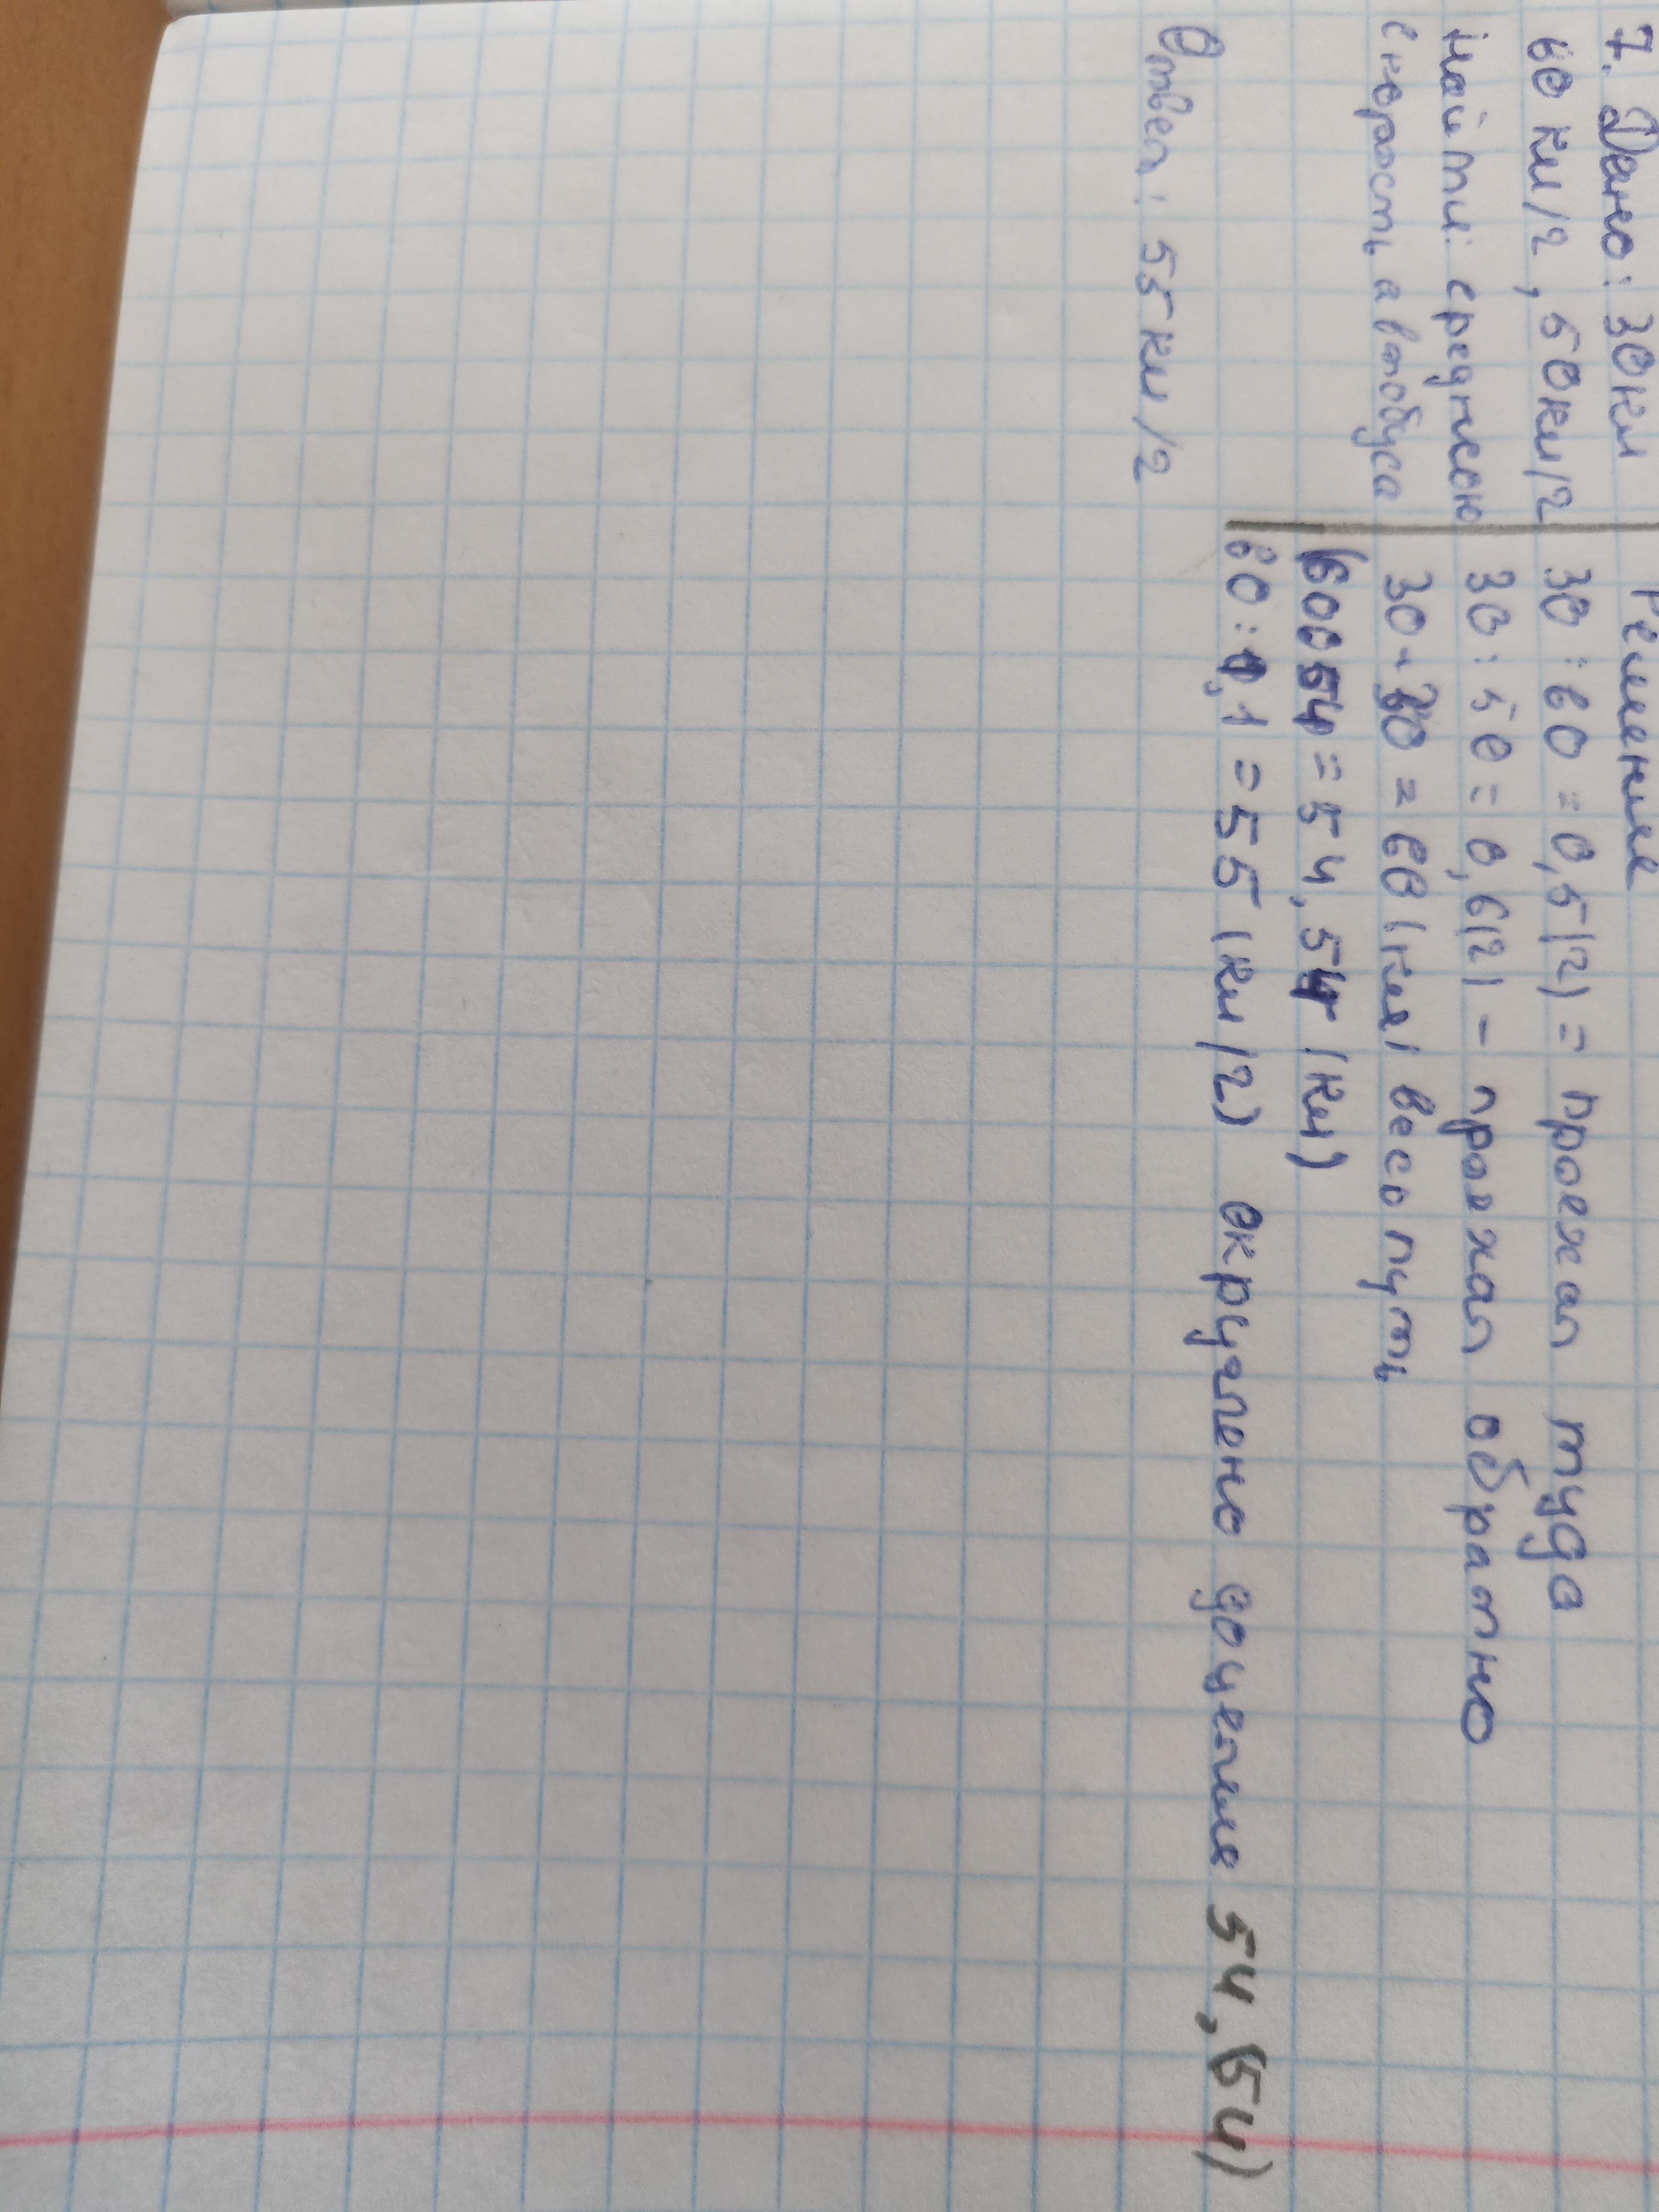 7. Дано: 30км
60 км/г, 50км/г
Найти: среднюю
скорость автобуса
Решение
30 : 60 = 0,5 (г) = проехал туда
30 : 50 = 0,6 (г) - проехал обратно
30 + 30 = 60 (км) весь путь
= 54,54 (км)
60 : 1,1 = 55 (км/г) округлено доцелых 54,(54)
Ответ: 55 км/г